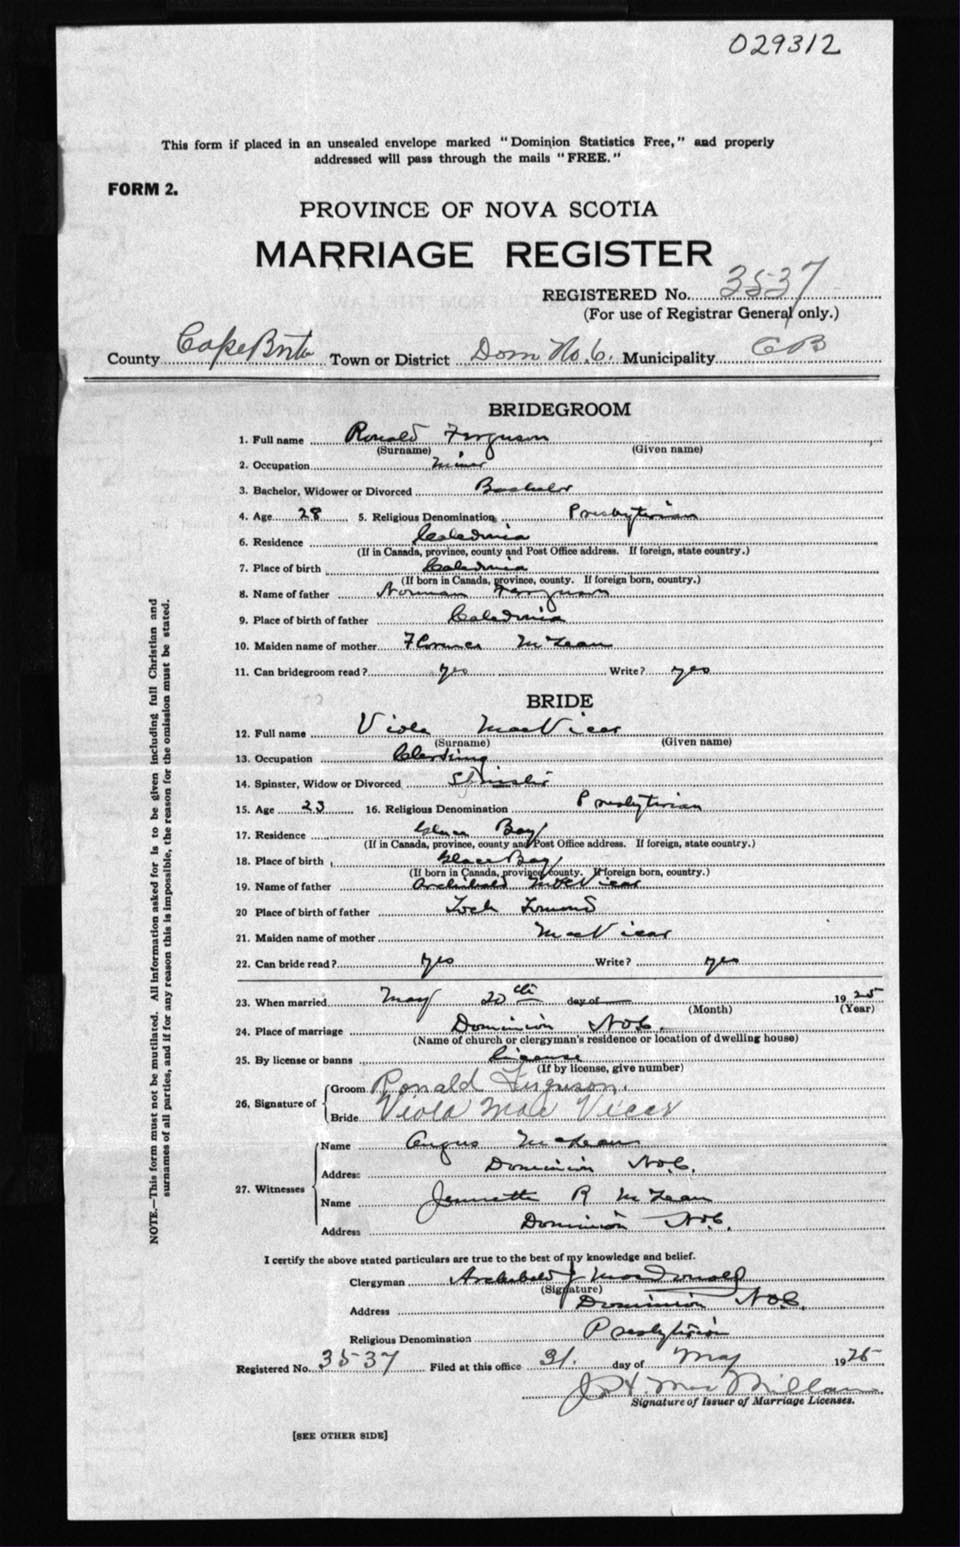 029312
This form if placed in an unsealed envelope marked "Dominion Statistics Free," and properly
addressed will pass through the mails "FREE."
FORM 2.
PROVINCE OF NOVA SCOTIA
MARRIAGE REGISTER
REGISTERED No. 3537
(For use of Registrar General only.)
County Cape Breton Town or District Dom No. 6. Municipality CB
BRIDEGROOM
1. Full name Ronald Ferguson
(Surname) (Given name)
2. Occupation miner
3. Bachelor, Widower or Divorced Bachelor
4. Age 28 5. Religious Denomination Presbyterian
6. Residence Caledonia
(If in Canada, province, county and Post Office address. If foreign, state country.)
7. Place of birth Caledonia
(If born in Canada, province, county. If foreign born, country.)
8. Name of father Norman Ferguson
9. Place of birth of father Caledonia
10. Maiden name of mother Florence McLean
11. Can bridegroom read? yes Write? yes
BRIDE
12. Full name Viola MacVicar
(Surname) (Given name)
13. Occupation Clerking
14. Spinster, Widow or Divorced Spinster
15. Age 23 16. Religious Denomination Presbyterian
17. Residence Glace Bay
(If in Canada, province, county and Post Office address. If foreign, state country.)
18. Place of birth Glace Bay
(If born in Canada, province, county. If foreign born, country.)
19. Name of father Archibald McVicar
20 Place of birth of father Loch Lomond
21. Maiden name of mother MacVicar
22. Can bride read? yes Write? yes
23. When married May 20th day of 1925
(Month) (Year)
24. Place of marriage Dominion No 6.
(Name of church or clergyman's residence or location of dwelling house)
25. By license or banns license
(If by license, give number)
26. Signature of Groom Ronald Ferguson.
Bride Viola Mac Vicar
27. Witnesses Name Angus McLean
Address Dominion No 6.
Name Jennette R McLean
Address Dominion No 6.
I certify the above stated particulars are true to the best of my knowledge and belief.
Clergyman Archibald J MacDonald
(Signature)
Address Dominion No 6.
Religious Denomination Presbyterian
Registered No. 3537 Filed at this office 31. day of May 1925
J. H. MacMillan
Signature of Issuer of Marriage Licenses.
[SEE OTHER SIDE]
NOTE.—This form must not be mutilated. All information asked for is to be given including full Christian and
surnames of all parties, and if for any reason this is impossible, the reason for the omission must be stated.